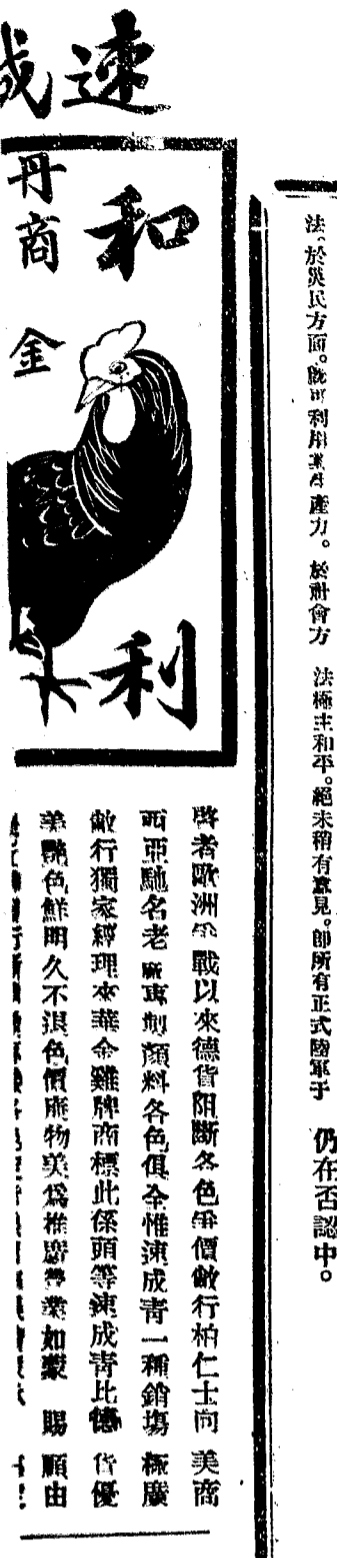 法、於災民方面。既可利用其生產力。於社會方
法極主和平。絕未稍有意見。即所有正式陸軍于
仍在否認中。
速成
和利
丹商
金
啓者歐洲爭戰以來德貨阻斷各色爭價敝行柏仁士向美商
西亞馳名老廠專製顏料各色俱全惟速成青一種銷塲極廣
敝行獨家經理來華金雞牌商標此係頭等速成青比德貨優
美艷色鮮明久不退色價廉物美爲推廣營業如蒙賜顧由